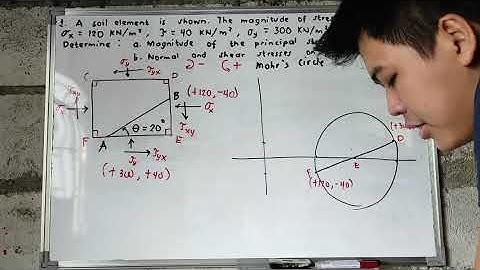 1. A soil element is shown. The magnitude of stre
σx = 120 KN/m², τ = 40 KN/m², σy = 300 KN/m
Determine: a. Magnitude of the principal st
b. Normal and shear stresses on
Mohr's Circle
σy
τyx
C
D
(+120, -40)
B
σx
τxy
θ = 20°
F
A
E
τxy
σy
τyx
(+300, +40)
D
E
(+120, -40)